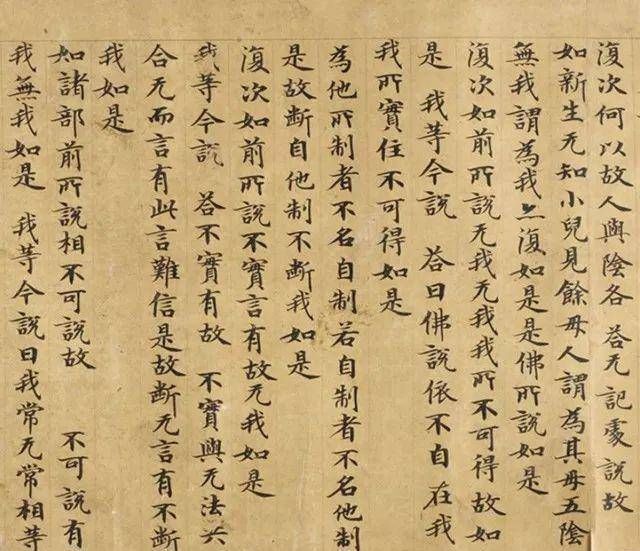 復次何以故人與陰各 荅无記處說故
如新生无知小兒見餘母人謂為其母五陰
無我謂為我亦復如是是佛所說如是
復次如前所說无我无我我所不可得故如
是 我等今說 荅曰佛說依不自在我
我所實住不可得如是
為他所制者不名自制若自制者不名他制
是故斷自他制不斷我如是
復次如前所說不實言有故无我如是
我等今說 荅不實有故 不實與无法共
合无而言有此言難信是故斷无言有不斷
我如是
如諸部前所說相不可說故 不可說有
我無我如是 我等今說曰我常无常相等